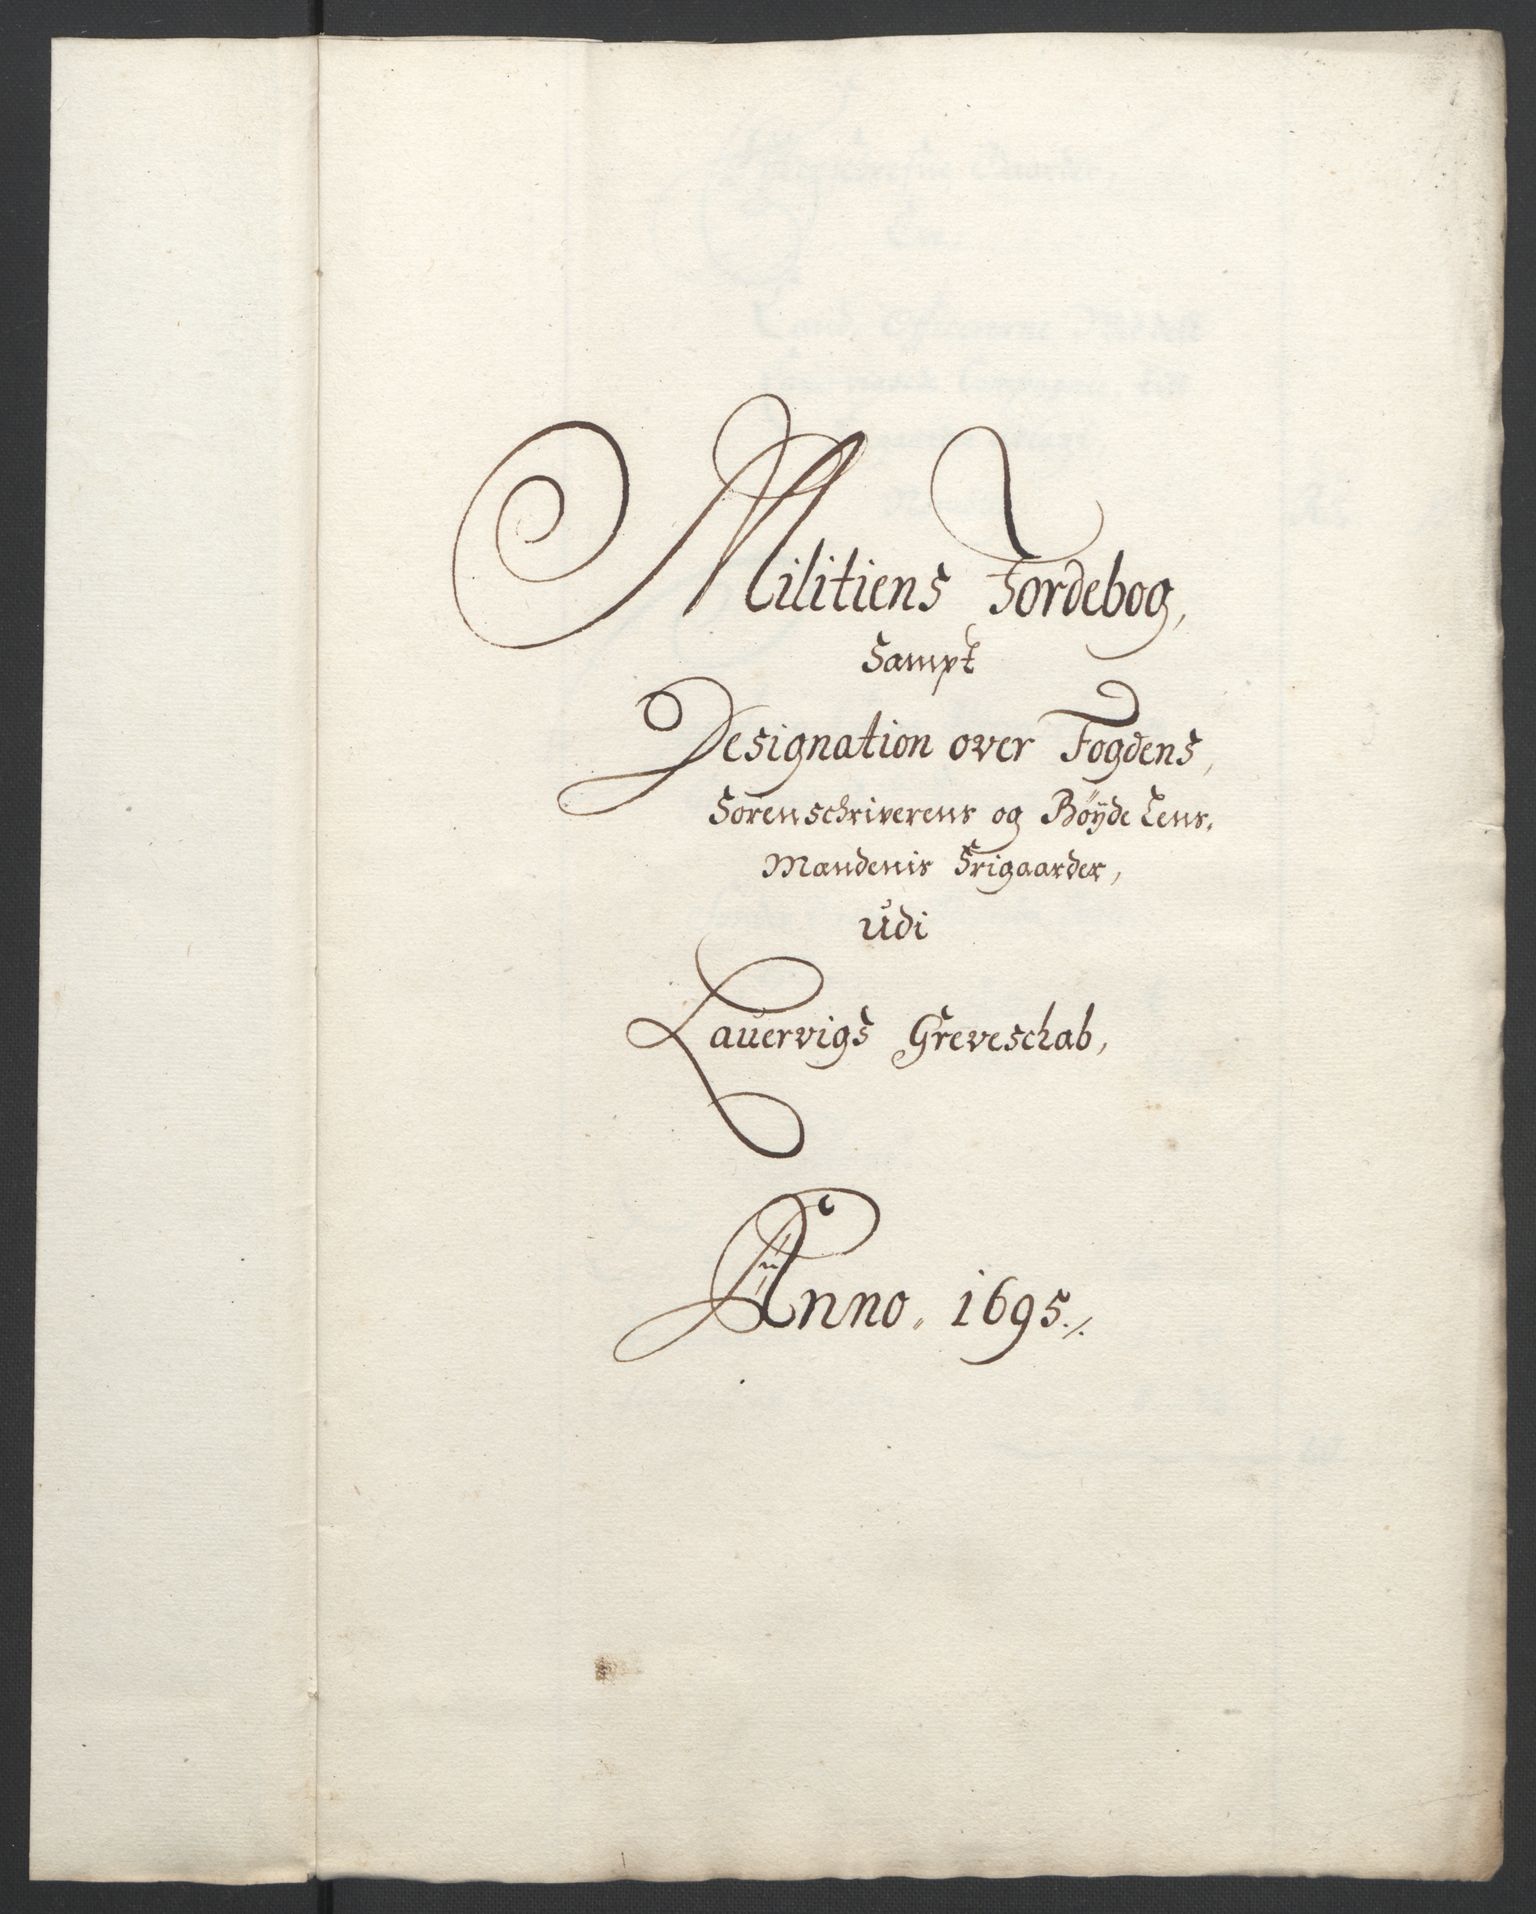 Militiens Jordebog,
Sampt
Designation over Fogdens,
Sorenschriverens og Böyde Lens,
Mandenis Frigaarder,
Udi
Lauervigs Greveschab,
Anno. 1695./.